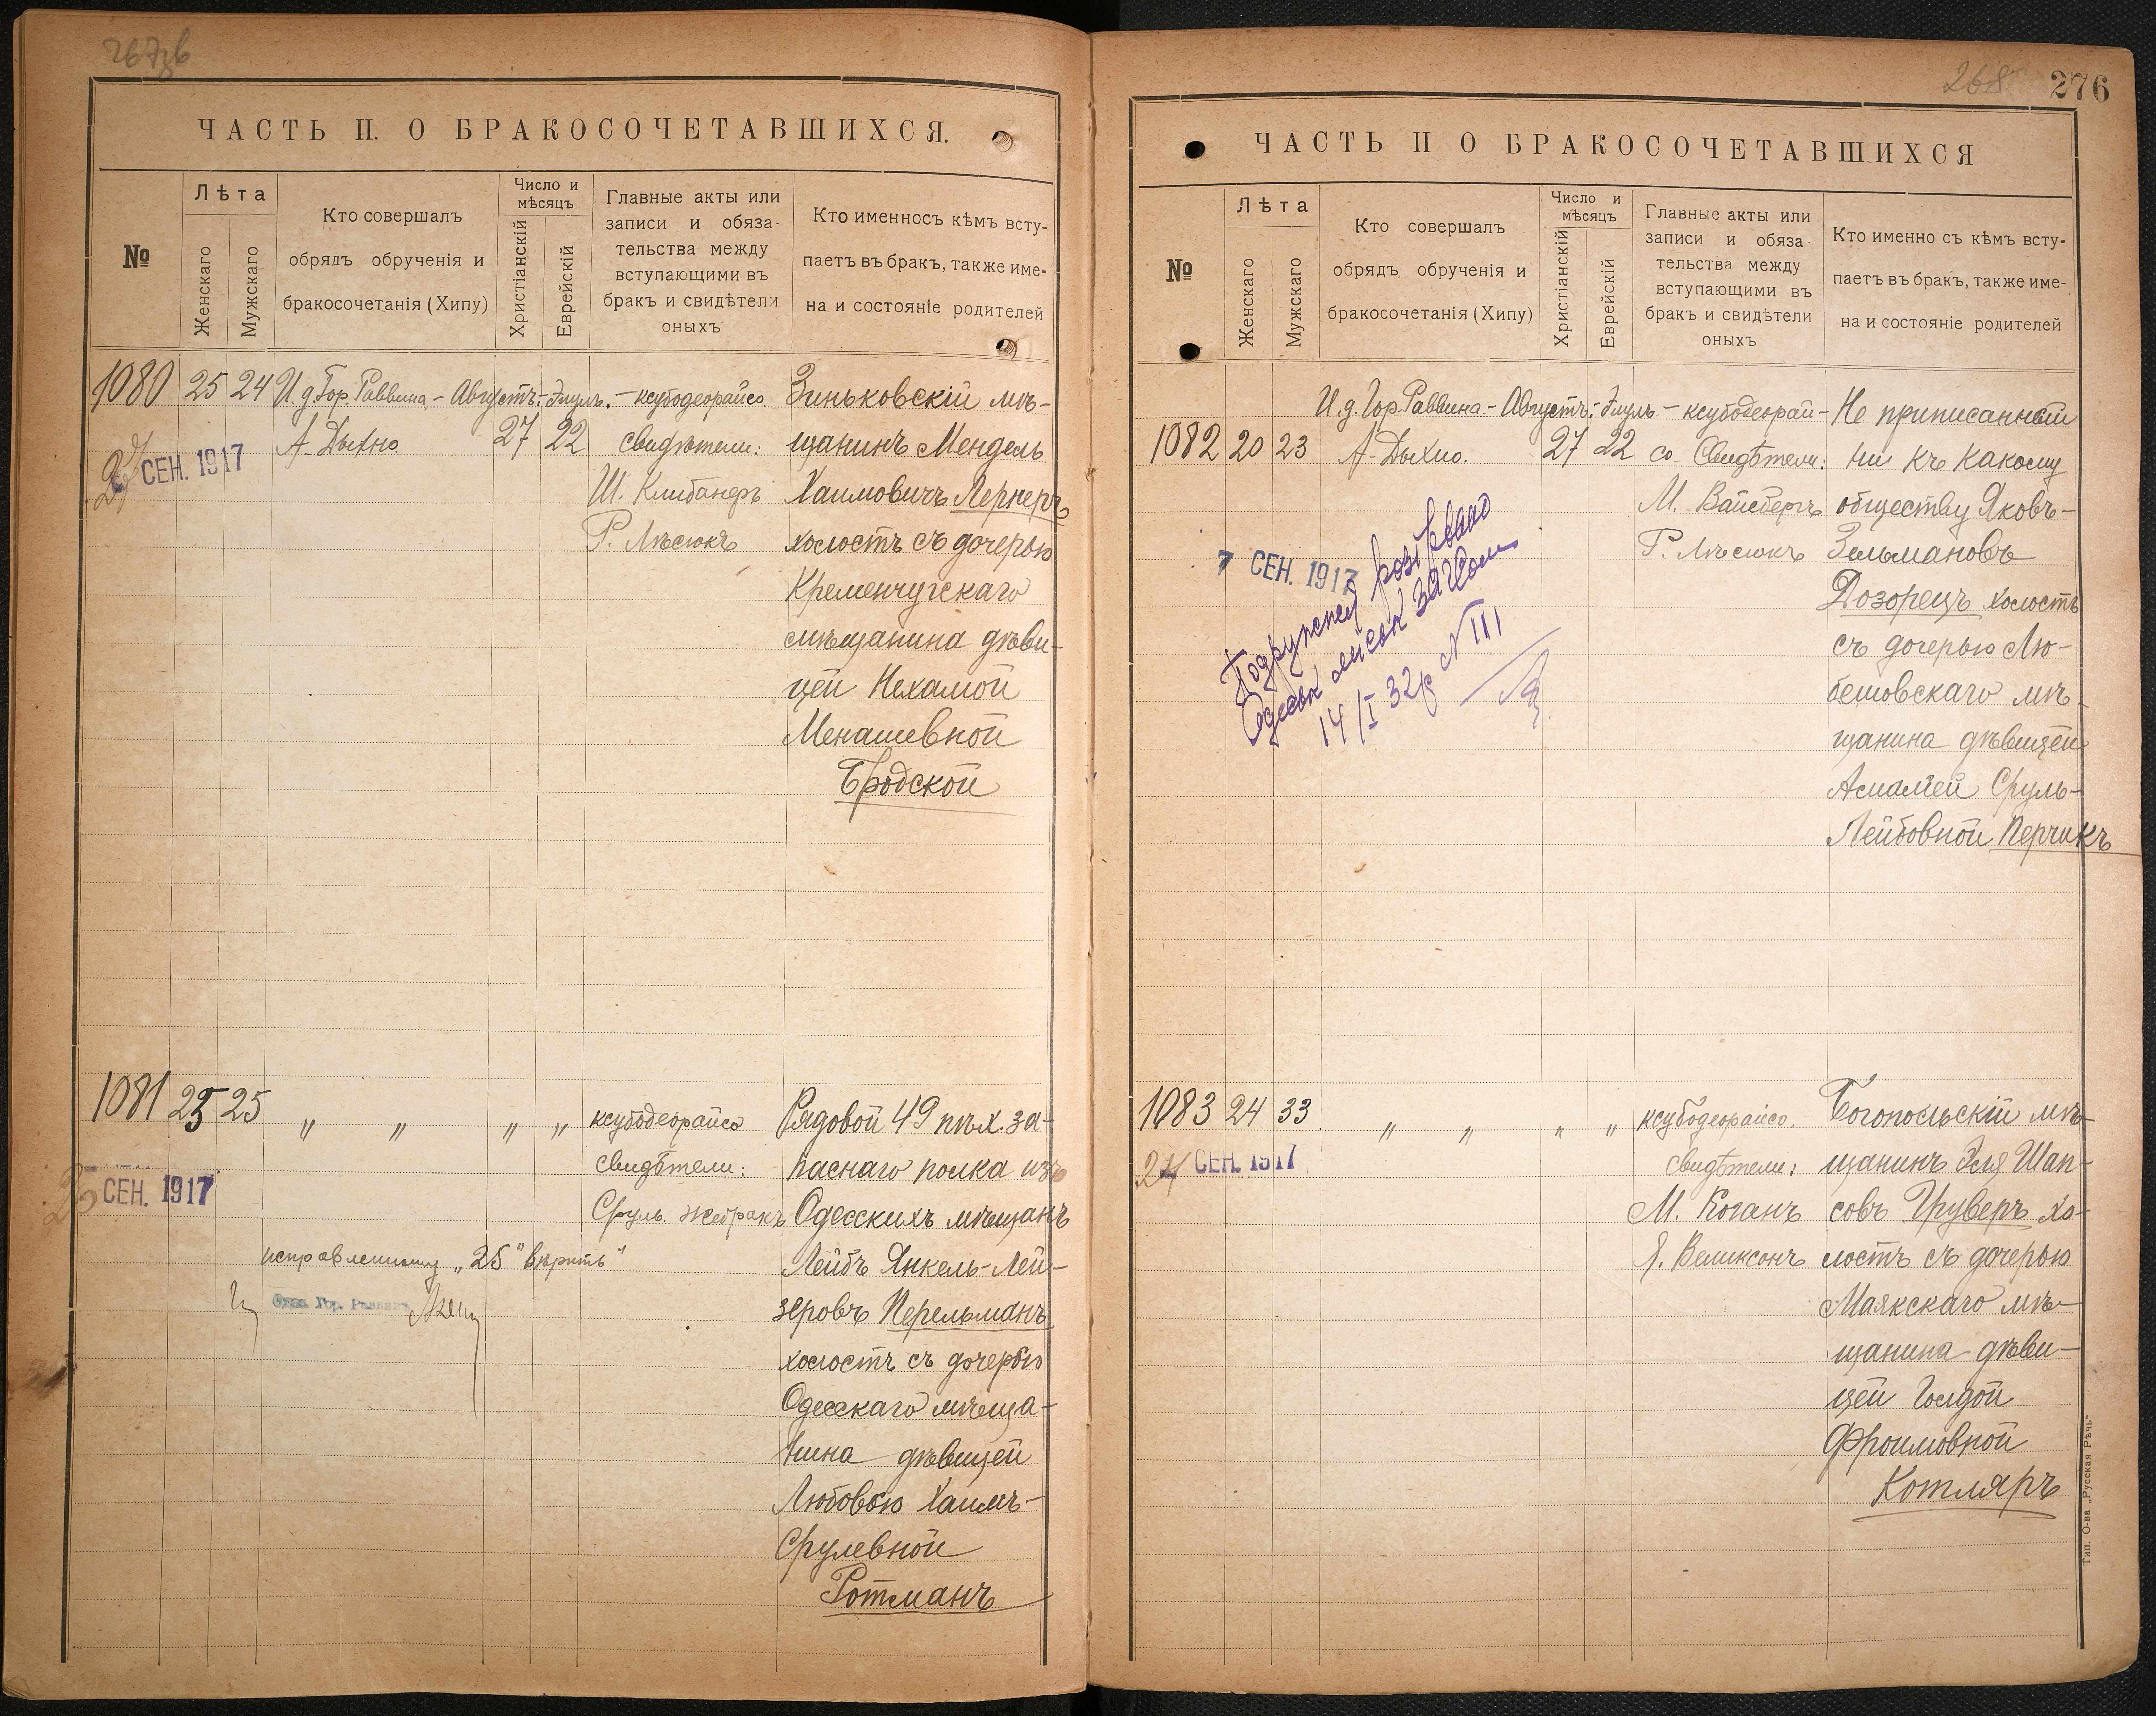 ЧАСТЬ II. О БРАКОСОЧЕТАВШИХСЯ.
№
Лѣта
Женскаго
Мужскаго
Кто совершалъ
обрядъ обрученія и
бракосочетанія (Хипу)
Число и
мѣсяцъ
Христіанскій
Еврейскій
Главные акты или
записи и обяза-
тельства между
вступающими въ
бракъ и свидѣтели
оныхъ
Кто именносъ кѣмъ всту-
паетъ въ бракъ, также име-
на и состояніе родителей
1080 25 24
И. д. Гор. Раввина
А. Дыхно
Августъ 27
Элулъ 22
ксубодеорайсо
свидѣтели:
Ш. Клибанеръ
Р. Лѣсюкъ
Зиньковскій мѣ-
щанинъ Мендель
Хаимовичъ Лернеръ
холостъ съ дочерью
Кременчугскаго
мѣщанина дѣви-
цей Нехамой
Менашевной
Бродской
27 СЕН. 1917
1081 25 25
" " " "
ксубодеорайсо
свидѣтели:
Сруль Жебракъ
Рядовой 49 пѣх. за-
паснаго полка изъ
Одесскихъ мѣщанъ
Лейбъ Янкель-Лей-
зеровъ Перельманъ
холостъ съ дочерью
Одесскаго мѣща-
нина дѣвицей
Любовью Хаимъ-
Срулевной
Ротманъ
СЕН. 1917
исправленному „25" вѣрить"
276
268
ЧАСТЬ II О БРАКОСОЧЕТАВШИХСЯ
№
Лѣта
Женскаго
Мужскаго
Кто совершалъ
обрядъ обрученія и
бракосочетанія (Хипу)
Число и
мѣсяцъ
Христіанскій
Еврейскій
Главные акты или
записи и обяза
тельства между
вступающими въ
бракъ и свидѣтели
оныхъ
Кто именно съ кѣмъ всту-
паетъ въ бракъ, также име-
на и состояніе родителей
1082 20 23
И. д. Гор. Раввина
А. Дыхно.
Августъ 27
Элуль 22
ксубодеорай-
со Свидѣтели:
М. Вайсбергъ
Р. Лѣсюкъ
Не приписанный
ни къ какому
обществу Яковъ-
Зельмановъ
Дозорецъ холостъ
съ дочерью Лю-
бешовскаго мѣ-
щанина дѣвицей
Амаліей Сруль-
Лейбовной Перчикъ
7 СЕН. 1917
Подружжея розірвано
Одеськ міськ ЗАГСом
14/I 32р N 111
1083 24 33
" " " "
ксубодеорайсо.
свидѣтели:
М. Коганъ
Я. Великсонъ
Богопольскій мѣ-
щанинъ Эля Шап-
совъ Груверъ хо-
лостъ съ дочерью
Маякскаго мѣ-
щанина дѣви-
цей Голдой
Фроимовной
Котляръ
24 СЕН. 1917
Тип. О-ва „Русская Рѣчь"